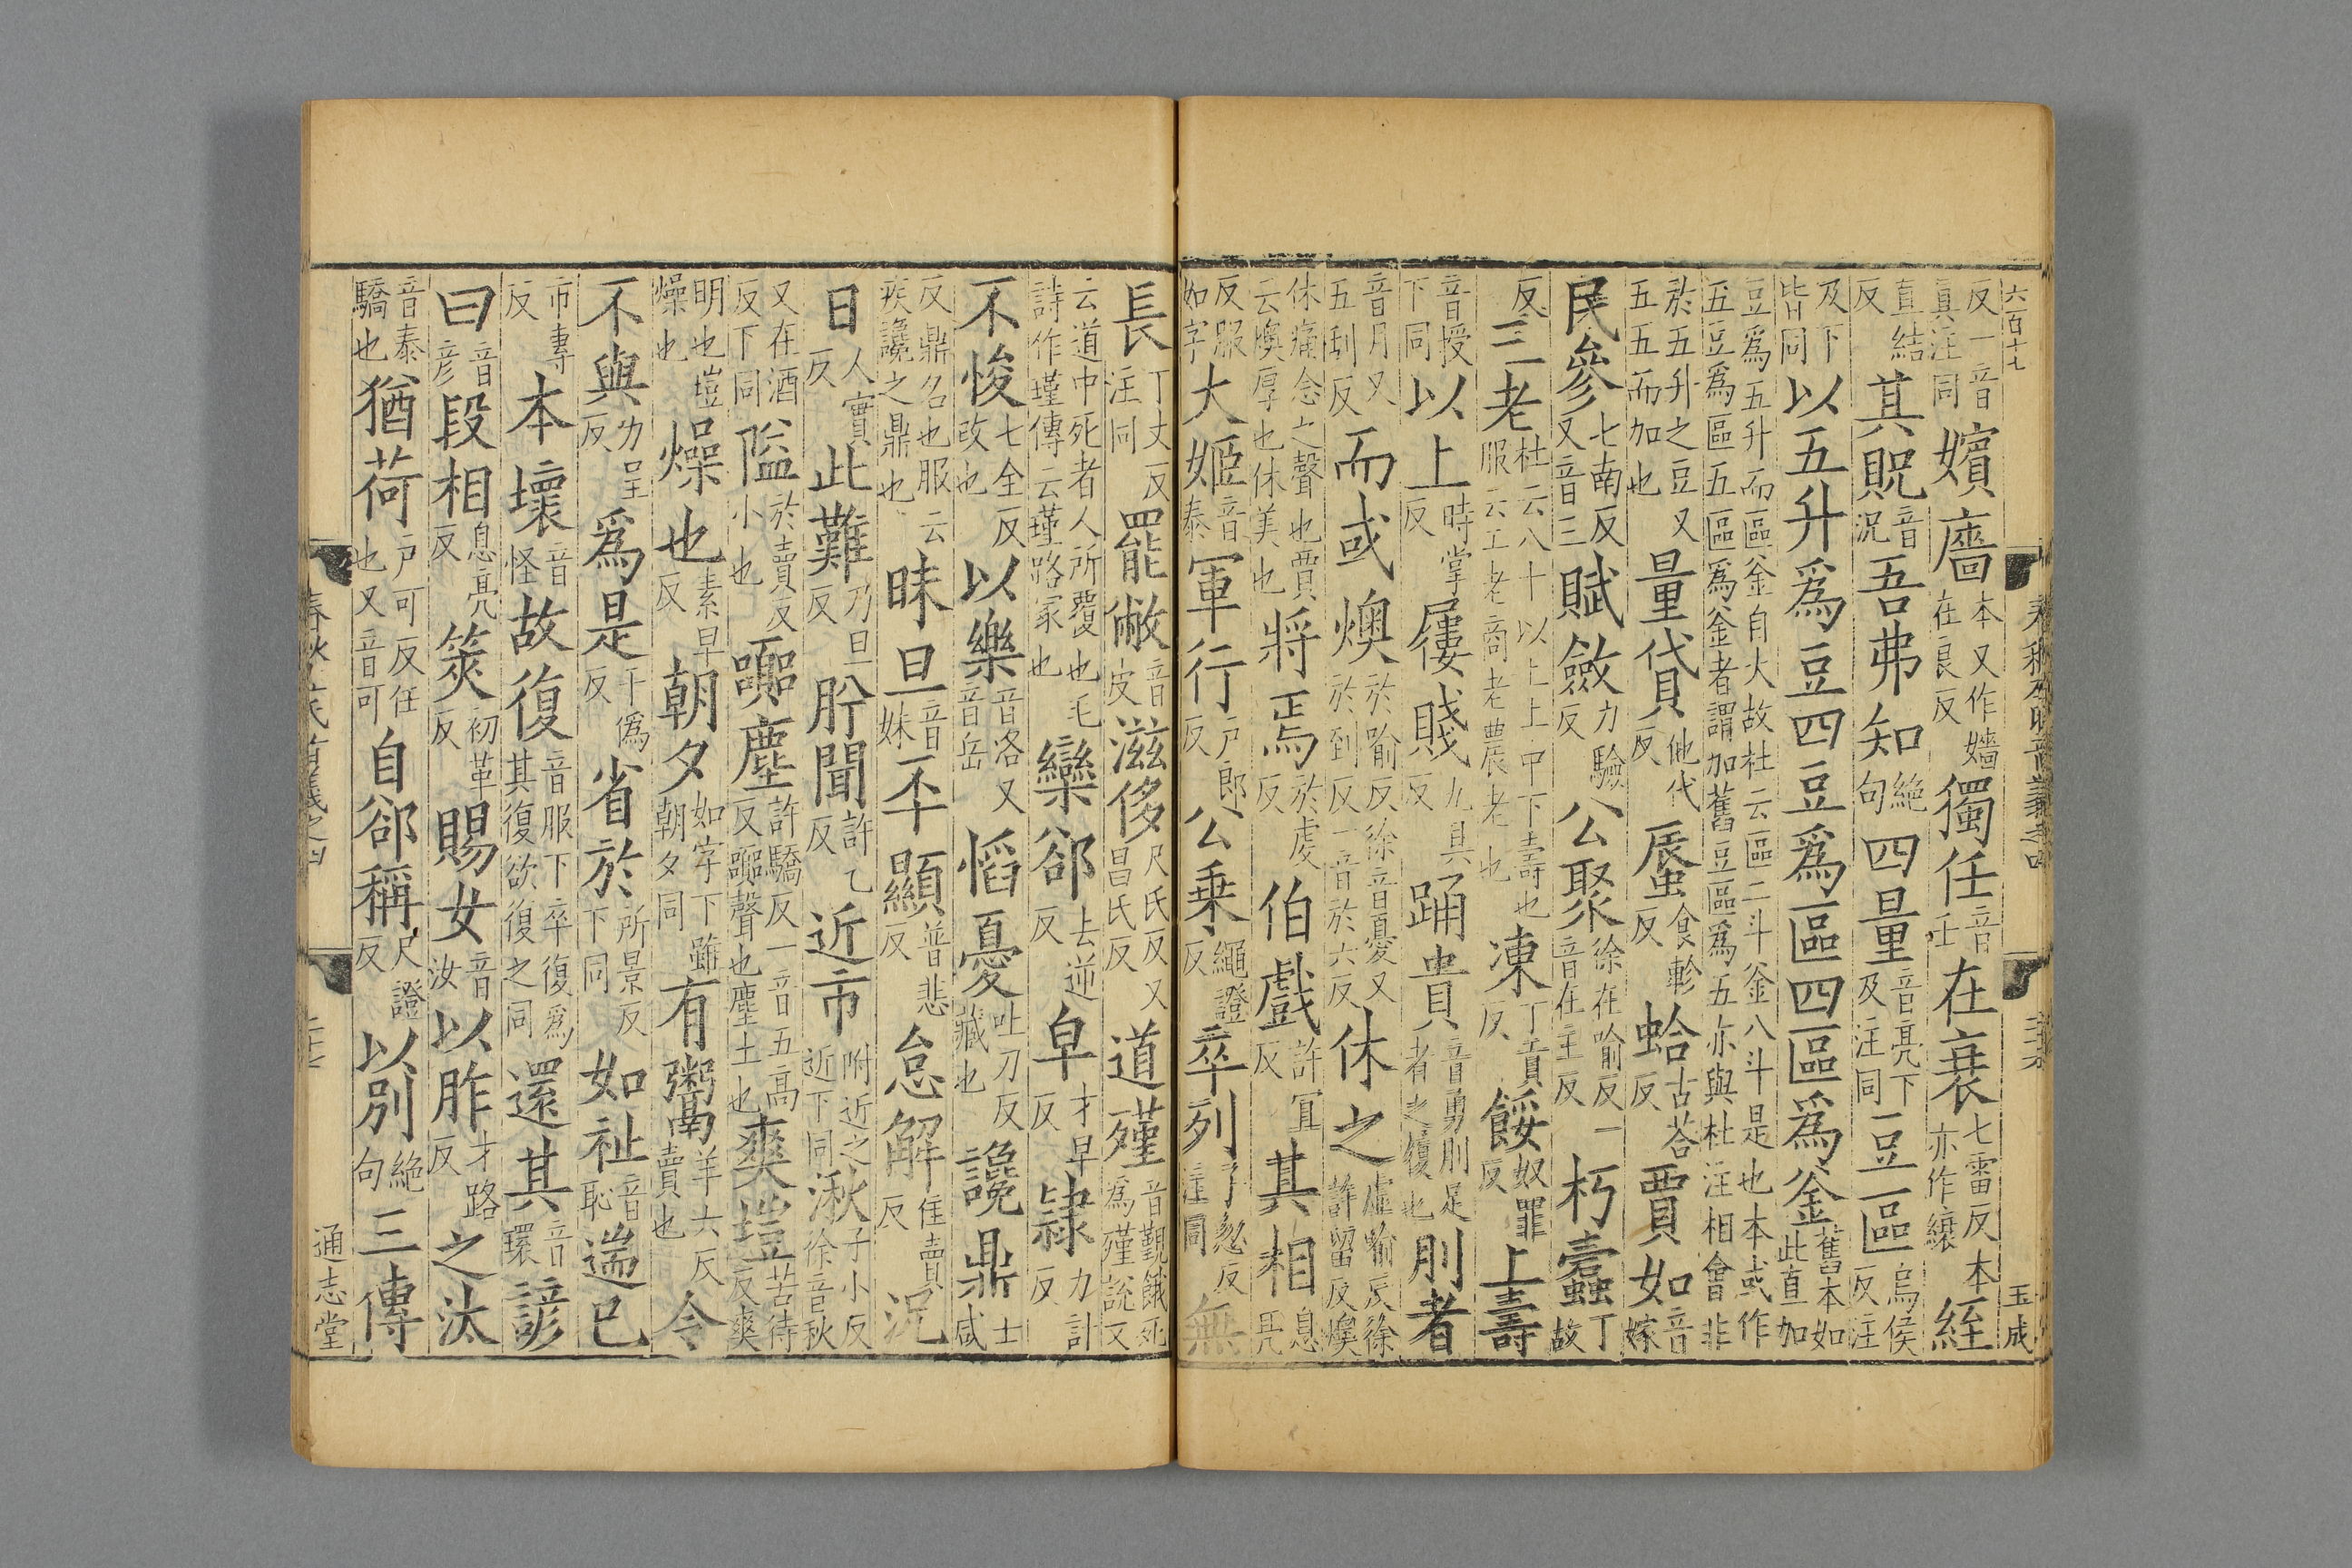 六百十七 春秋左氏音義之四 玉成
反一音真注同嬪嬙本又作嬙在良反獨任音壬在衰七雷反本亦作縗絰
直結反其貺音況吾弗知絕句四量音亮下及注同豆區烏侯反注
及下皆同以五升爲豆四豆爲區四區爲釜舊本如此直加
豆爲五升而區釜自大故杜云區二斗釜八斗是也本或作五豆爲區五區爲釜者謂加舊豆區爲五亦與杜注相會非
於五升之豆又五五而加也量貸他代反蜃食軫反蛤古荅反賈如音嫁
民參七南反又音三賦斂力驗反公聚徐在喻反一音在主反朽蠹丁故
反三老杜云八十以上上中下壽也服云工老商老農老也凍丁貢反餒奴罪反上壽
音授下同以上時掌反屨賤九具反踊貴音勇刖足者之履也刖者
音月又五刮反而或燠於喻反徐音憂又於到反一音於六反休之虛喻反徐許留反燠
休痛念之聲也賈云燠厚也休美也將焉於虔反伯戲許宜反其相息亮
反服如字大姬音泰軍行戶郎反公乗繩證反卒列子忽反注同無
長丁丈反注同罷敝音皮滋侈尺氏反又昌氏反道殣音覲餓死爲殣說文
云道中死者人所覆也毛詩作墐傳云墐路冢也欒郤去逆反皁才早反隸力計反
不悛七全反改也以樂音洛又音岳慆憂吐刀反藏也讒鼎士咸
反鼎名也服云疾讒之鼎也昧旦音妹丕顯普悲反怠解佳賣反況
日人實反此難乃旦反肸聞許乙反近市附近之近下同湫子小反徐音秋
又在酒反下同隘於賣反小也嚻塵許驕反一音五高反嚻聲也塵土也爽塏苦待反爽
明也塏燥也燥也素早反朝夕如字下雖朝夕同有鬻羊六反賣也令
不與力呈反爲是于僞反省於所景反下同如祉音恥遄已
市專反本壞音怪故復音服下卒復爲其復欲復之同還其音環諺
曰音彥段相息亮反筴初革反賜女音汝以胙才路反之汰
音泰驕也猶荷戶可反任也又音可自郤稱尺證反以別絕句三傳
春秋左氏音義之四 通志堂